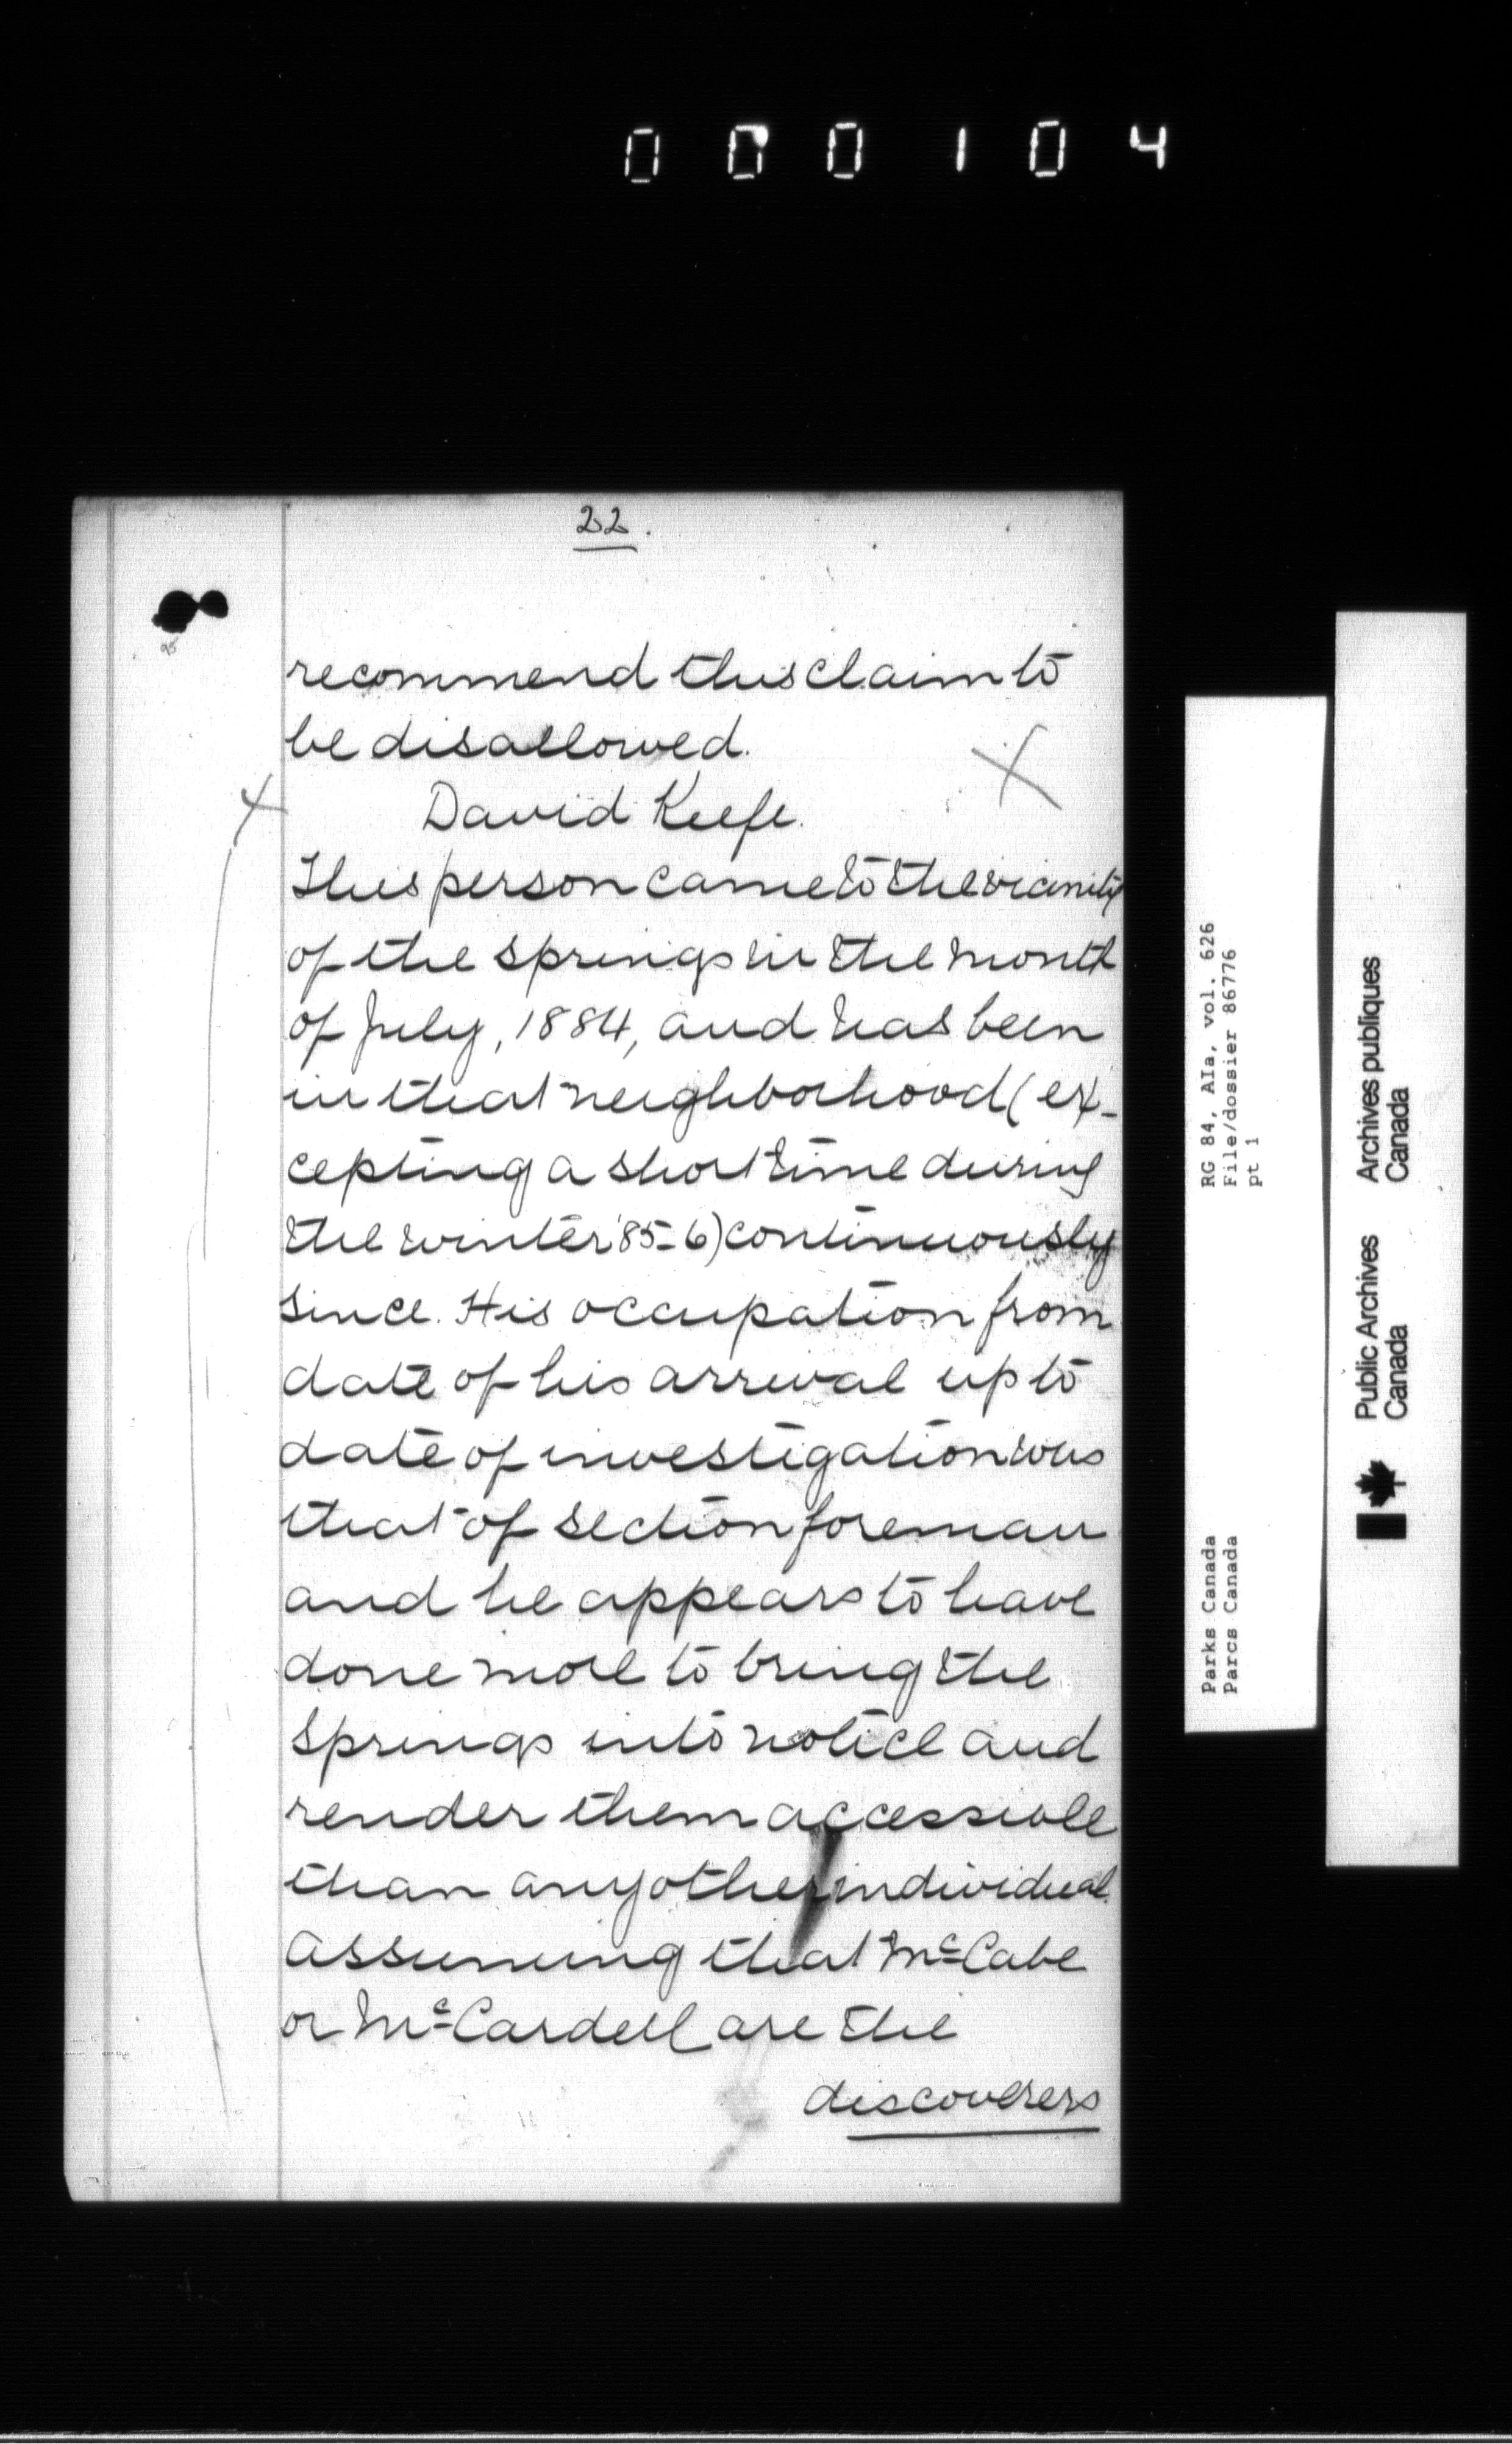 000104
22.
recommend this claim to
be disallowed.
David Keefe.
This person came to the vicinity
of the springs in the month
of July, 1884, and has been
in that neighborhood (ex-
cepting a short time during
the winter '85-6) continuously
since. His occupation from
date of his arrival up to
date of investigation was
that of section foreman
and he appears to have
done more to bring the
springs into notice and
render them accessible
than any other individual.
Assuming that McCabe
or McCardell are the
discoverers
RG 84, AIa, vol. 626
File/dossier 86776
pt 1
Parks Canada
Parcs Canada
Public Archives
Canada
Archives publiques
Canada